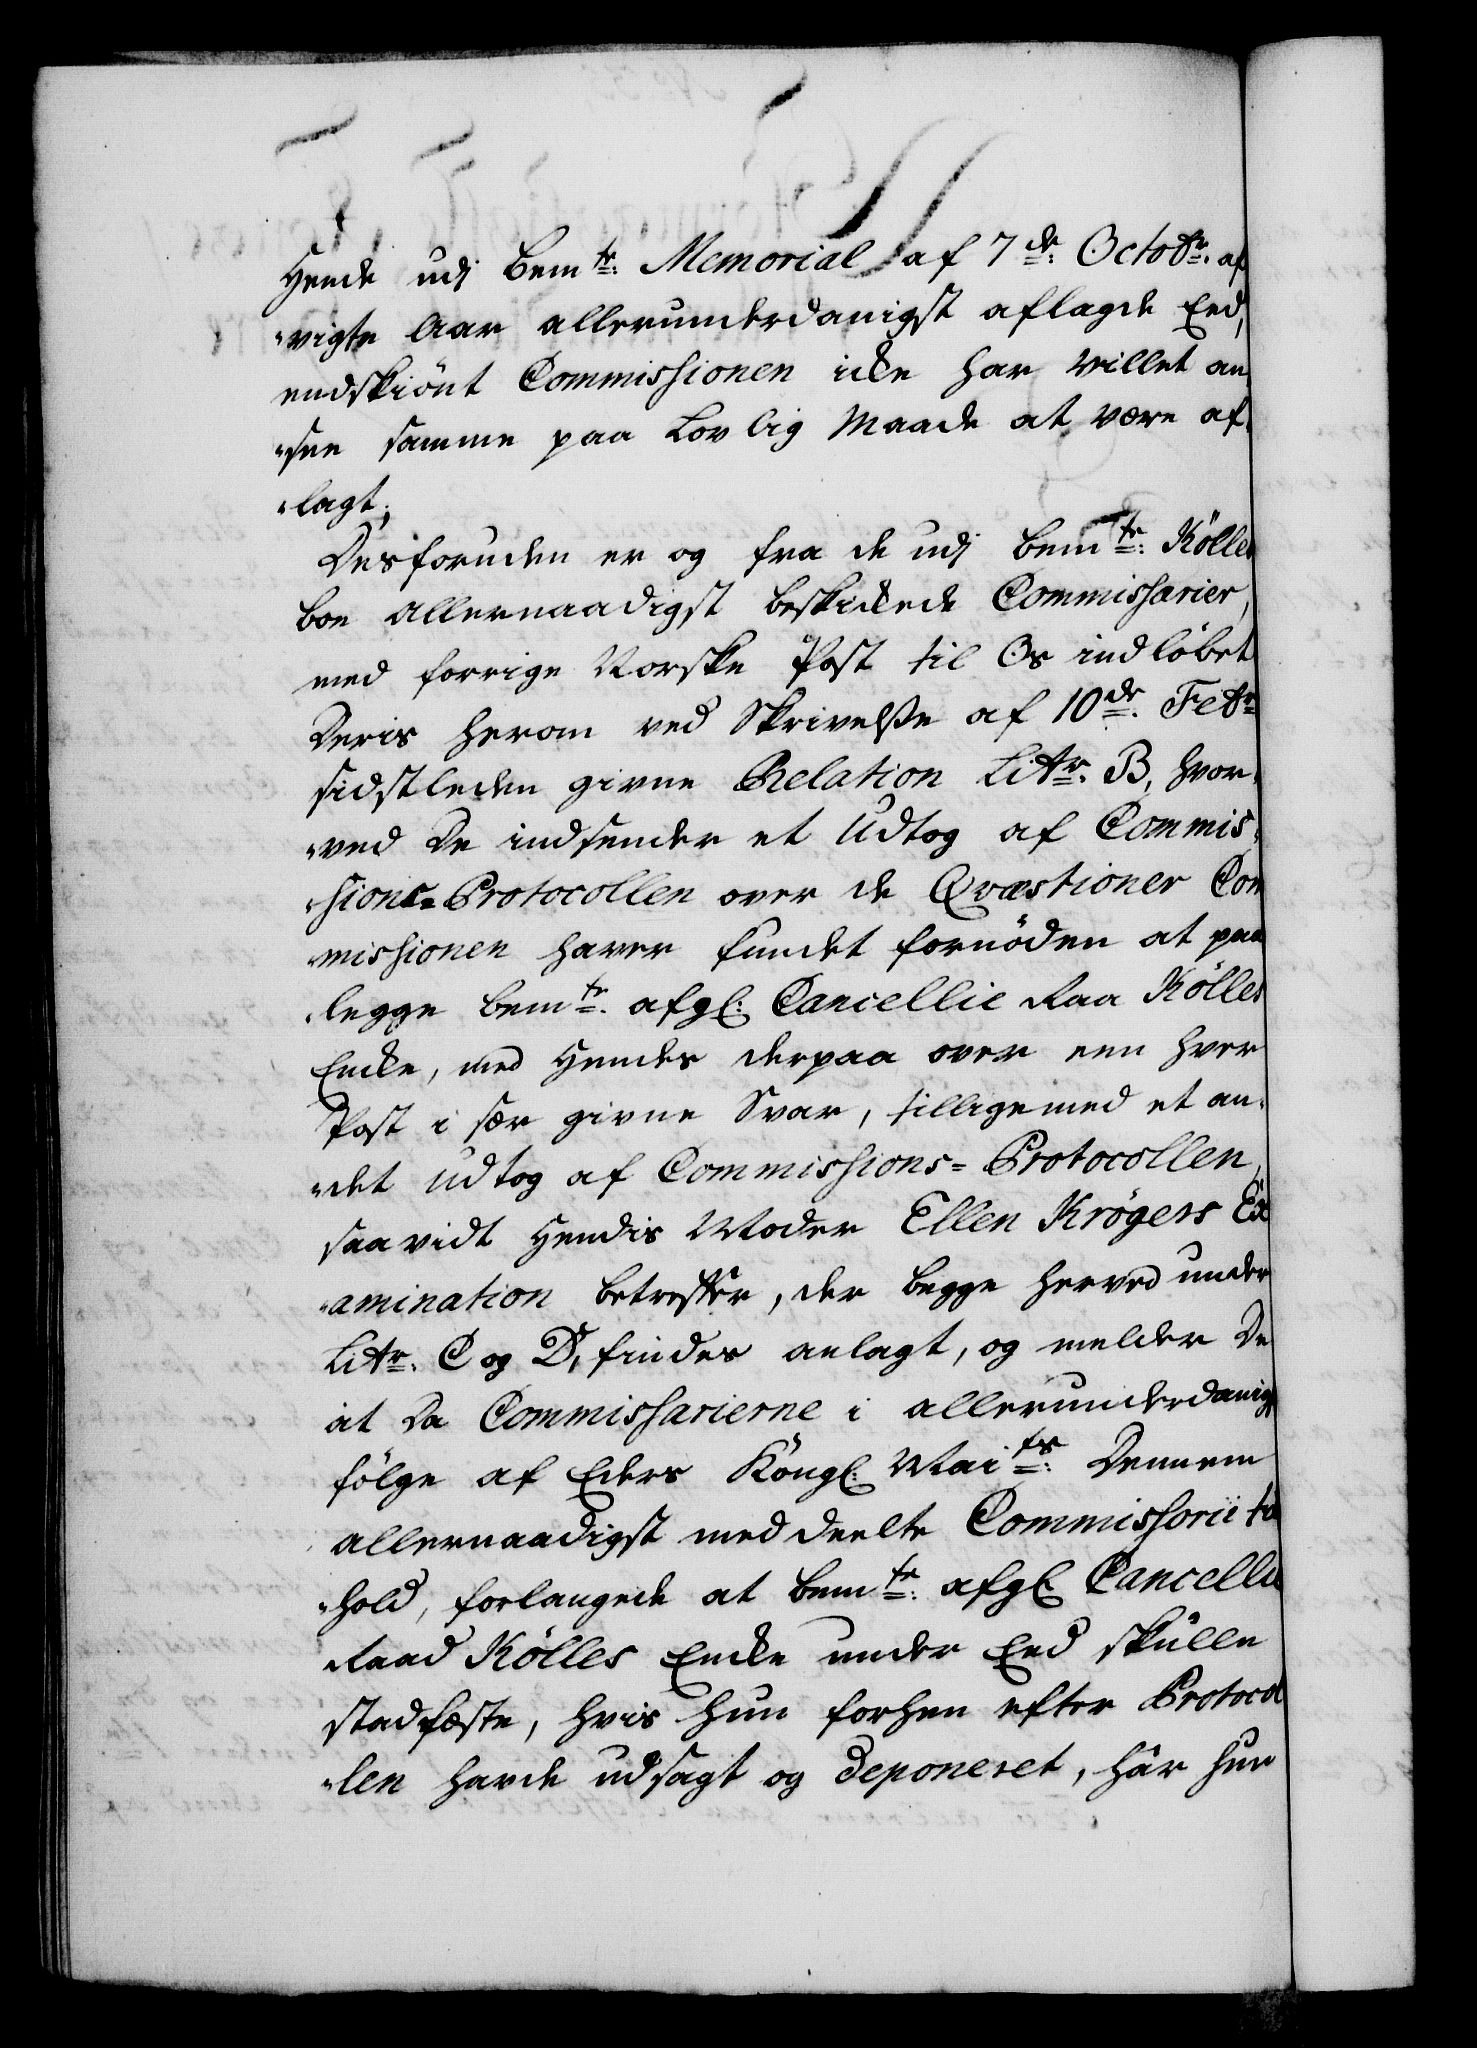 Hende udj bem.te: Memorial af 7de: Octobr. af
-vigte Aar allerunderdanigst aflagde Eed,
endskiönt Commissionen icke har villet an
-see samme paa Lovlig Maade at være af
-lagt;
Desforuden er og fra de udj bem.te: Kölles
boe allernaadigst beskickede Commissarier,
med forrige Norske Post til Os indløbet
Deris herom ved Skrivelse af 10de. Febr.
sidstleden givne Relation Litr. B, hvor-
-ved De indsender et Udtog af Commis-
-sions-Protocollen over de Qvæstioner Com
-missionen haver fundet fornöden at paa
-legge bem.te afgl: Cancellie Raa Kölles
Encke, med Hendes derpaa over een hver
Post i sær givne Svar, tilligemed et an-
-det Udtog af Commissions-Protocollen,
saavidt Hendis Moder Ellen Krøgers Ex
-amination betreffer, der begge herved under
Litr. C og D, findes anlagt, og melder De
at da Commissarierne i allerunderdanigst
fölge af Eders Kongl: Mai.ts: Dennem
allernaadigst meddeelte Commissorii in
-hold, forlangede at bem.te: afgl. Cancellie
Raad Kölles Encke under Eed skulle
stadfæste, hvis hun forhen efter Protocol
-len havde udsagt og deponeret, har hun